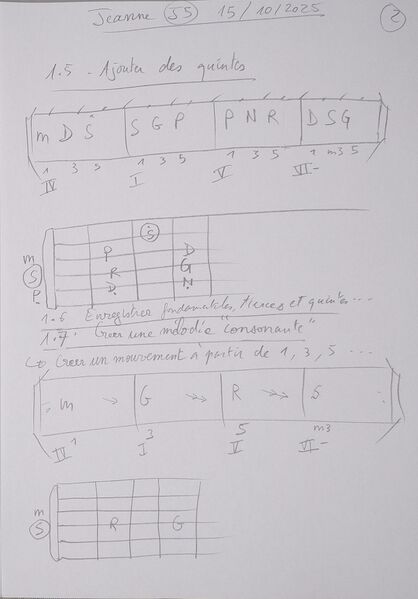 Jeanne S5 15/10/2025 2
1.5 - Ajouter des quintes
m D Ṡ S G P P N R D S G
1 3 5 1 3 5 1 3 5 1 m3 5
IV I V VI-
Ṡ
m P D
S R G
P. Ḍ Ṇ
1.6 Enregistrer fondamentales, tierces et quintes...
1.7. Creer une mélodie "consonante"
↳ Creer un mouvement à partir de 1, 3, 5 ...
: m → G →→ R →→ S :
1 3 5 m3
IV I V VI-
m
S R G